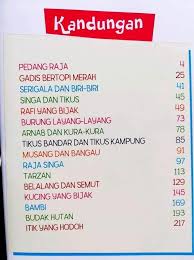 Kandungan
PEDANG RAJA 4
GADIS BERTOPI MERAH 25
SERIGALA DAN BIRI-BIRI 41
SINGA DAN TIKUS 45
RAFI YANG BIJAK 49
BURUNG LAYANG-LAYANG 73
ARNAB DAN KURA-KURA 78
TIKUS BANDAR DAN TIKUS KAMPUNG 85
MUSANG DAN BANGAU 91
RAJA SINGA 97
TARZAN 113
BELALANG DAN SEMUT 129
KUCING YANG BIJAK 145
BAMBI 169
BUDAK HUTAN 193
ITIK YANG HODOH 217